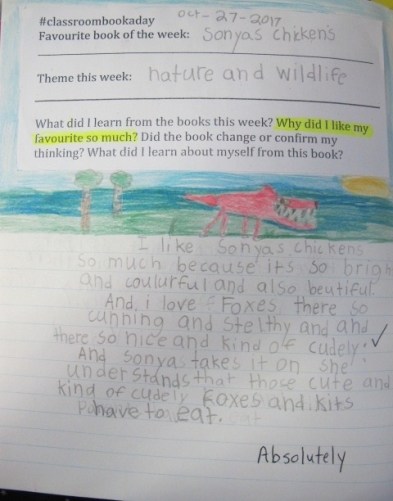 #classroombookaday oct-27-2017
Favourite book of the week: Sonyas Chickens
Theme this week: nature and wildlife
What did I learn from the books this week? Why did I like my
favourite so much? Did the book change or confirm my
thinking? What did I learn about myself from this book?
I like Sonyas chickens
so much because its so brigh
and coulurful and also beutiful.
And i love Foxes there so
cunning and stelthy and and
there so nice and kind of cudely.
And Sonyas takes it on she
understands that those cute and
kind of cudely Foxes and kits
have to eat.
Absolutely